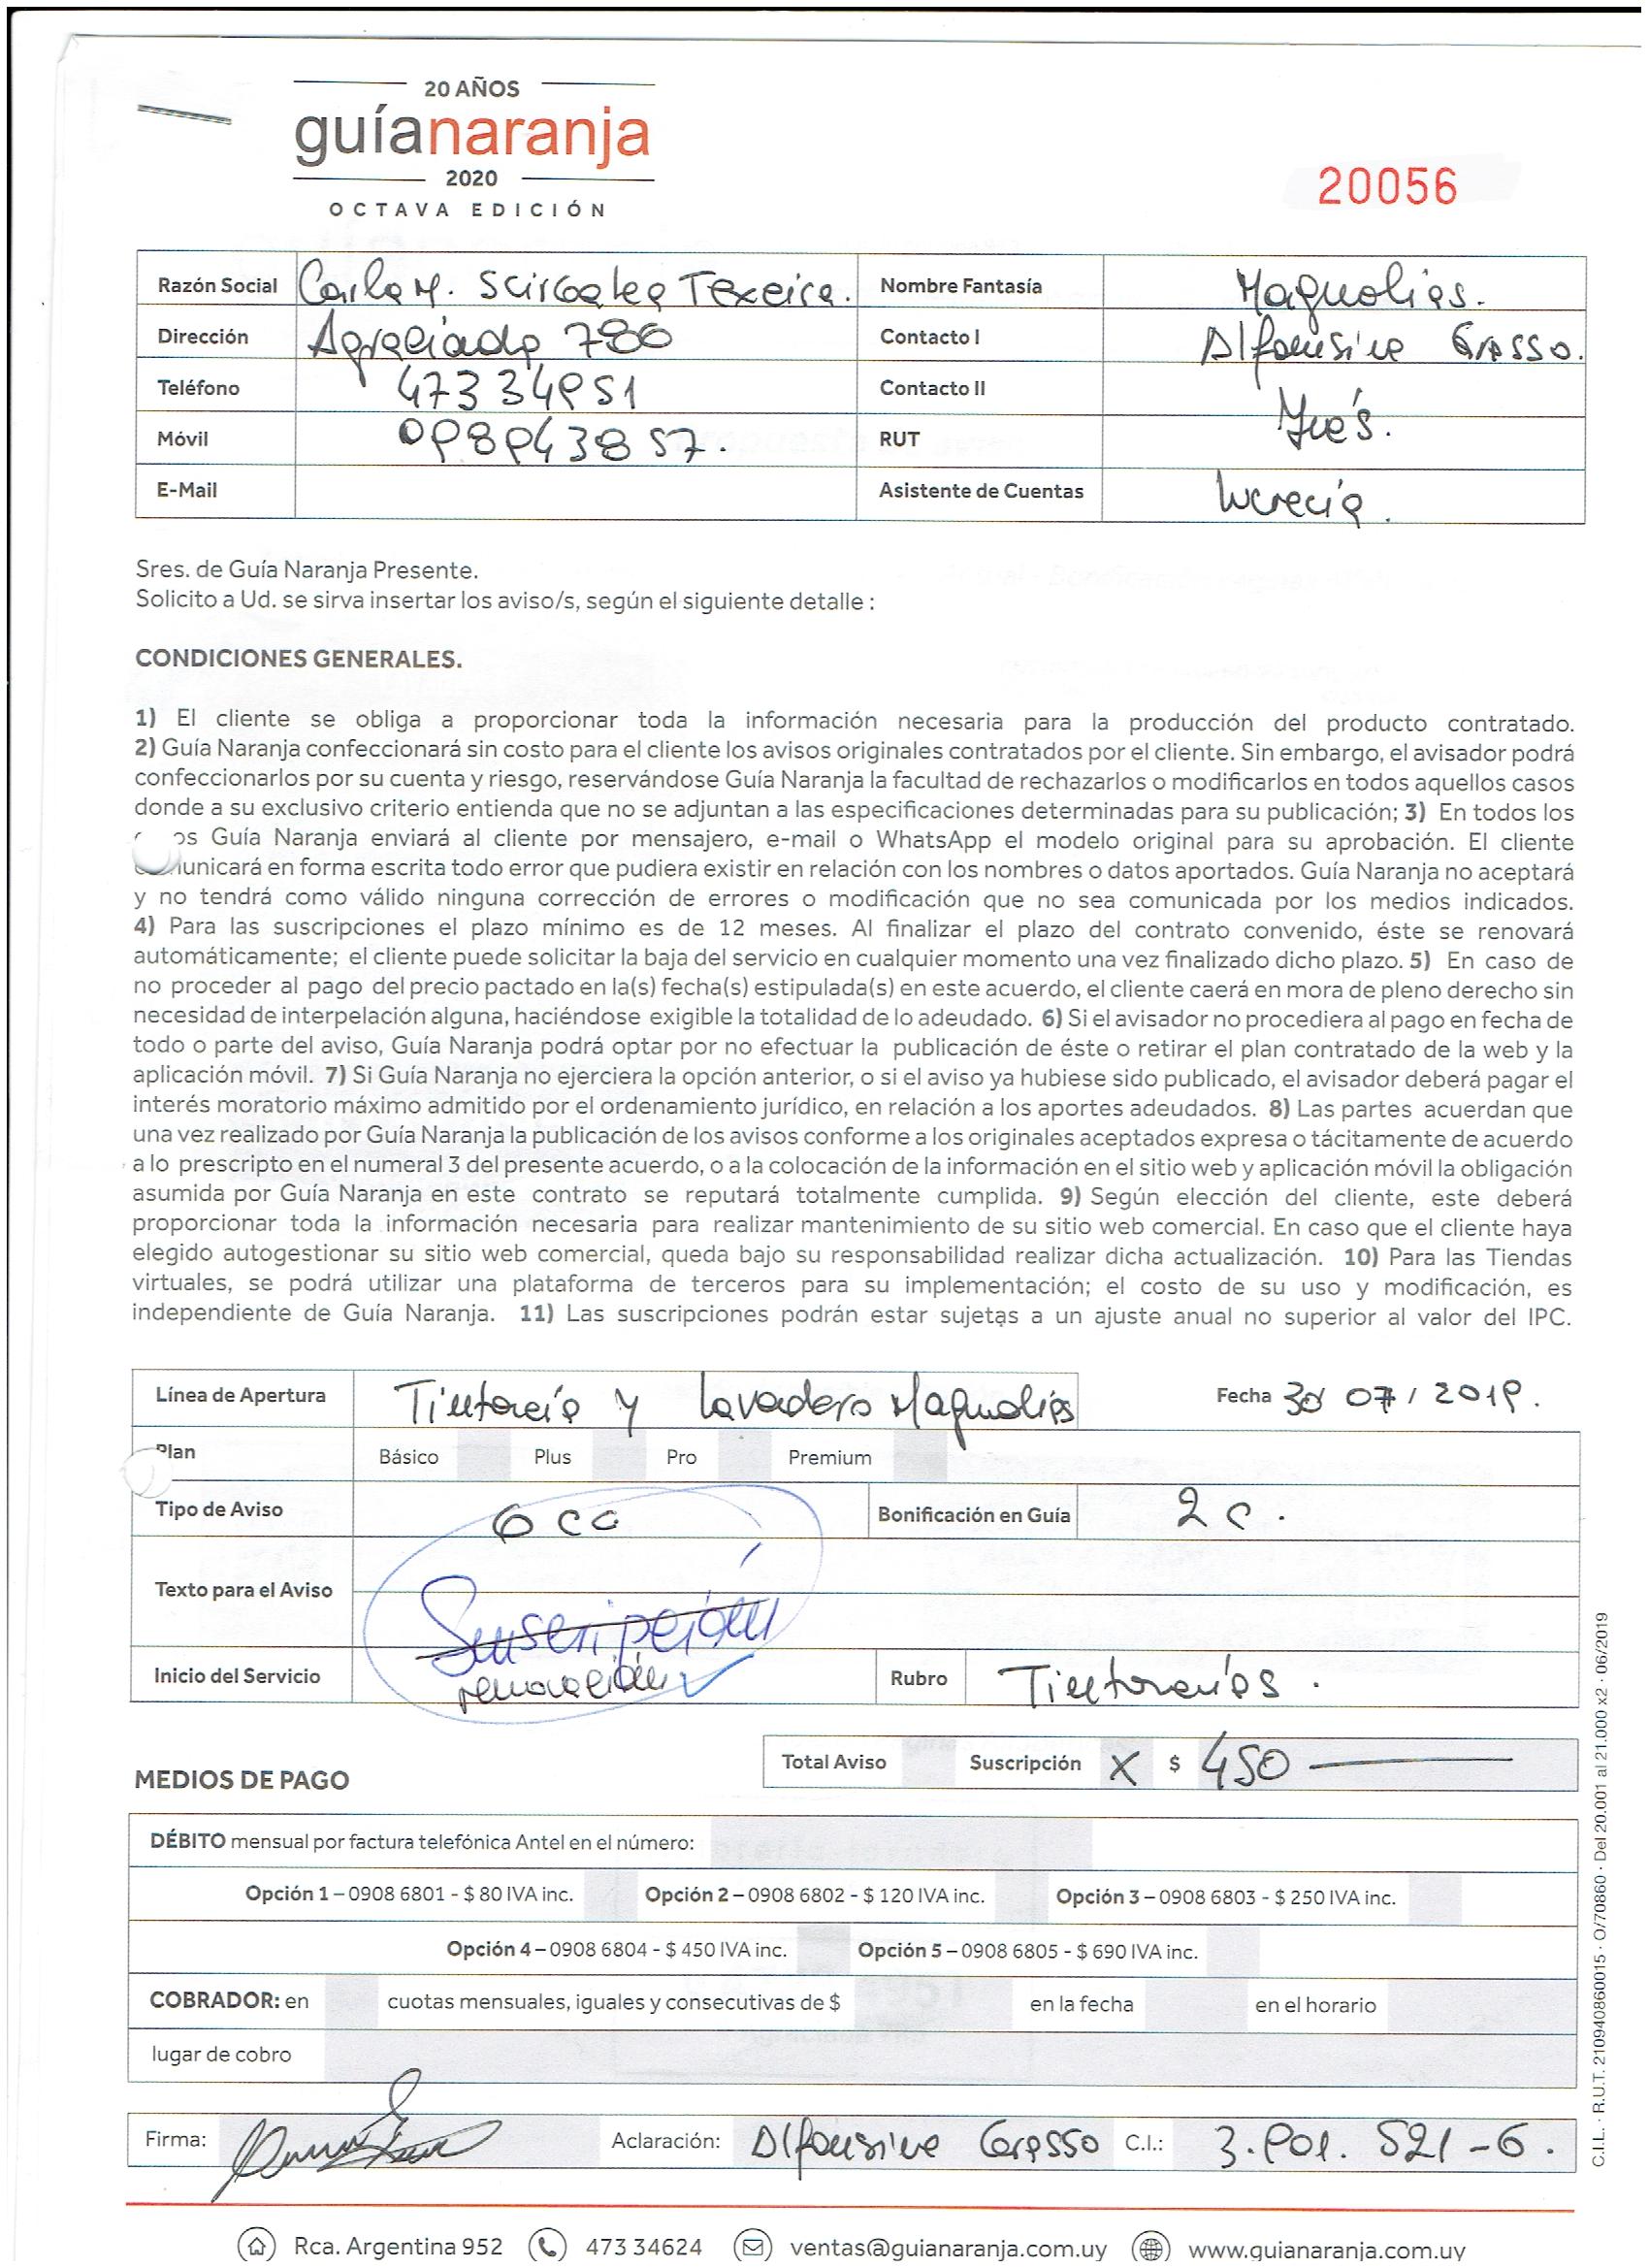 20 AÑOS
guíanaranja
2020
OCTAVA EDICIÓN
20056
Razón Social Carla M. Texeira. Nombre Fantasía Magnolias.
Dirección Agraciada 780 Contacto I Alfonsina Grasso.
Teléfono 473 34951 Contacto II Inés.
Móvil 098943857. RUT
E-Mail Asistente de Cuentas Lucrecia.
Sres. de Guía Naranja Presente.
Solicito a Ud. se sirva insertar los aviso/s, según el siguiente detalle :
CONDICIONES GENERALES.
1) El cliente se obliga a proporcionar toda la información necesaria para la producción del producto contratado.
2) Guía Naranja confeccionará sin costo para el cliente los avisos originales contratados por el cliente. Sin embargo, el avisador podrá
confeccionarlos por su cuenta y riesgo, reservándose Guía Naranja la facultad de rechazarlos o modificarlos en todos aquellos casos
donde a su exclusivo criterio entienda que no se adjuntan a las especificaciones determinadas para su publicación; 3) En todos los
os Guía Naranja enviará al cliente por mensajero, e-mail o WhatsApp el modelo original para su aprobación. El cliente
unicará en forma escrita todo error que pudiera existir en relación con los nombres o datos aportados. Guía Naranja no aceptará
y no tendrá como válido ninguna corrección de errores o modificación que no sea comunicada por los medios indicados.
4) Para las suscripciones el plazo mínimo es de 12 meses. Al finalizar el plazo del contrato convenido, éste se renovará
automáticamente; el cliente puede solicitar la baja del servicio en cualquier momento una vez finalizado dicho plazo. 5) En caso de
no proceder al pago del precio pactado en la(s) fecha(s) estipulada(s) en este acuerdo, el cliente caerá en mora de pleno derecho sin
necesidad de interpelación alguna, haciéndose exigible la totalidad de lo adeudado. 6) Si el avisador no procediera al pago en fecha de
todo o parte del aviso, Guía Naranja podrá optar por no efectuar la publicación de éste o retirar el plan contratado de la web y la
aplicación móvil. 7) Si Guía Naranja no ejerciera la opción anterior, o si el aviso ya hubiese sido publicado, el avisador deberá pagar el
interés moratorio máximo admitido por el ordenamiento jurídico, en relación a los aportes adeudados. 8) Las partes acuerdan que
una vez realizado por Guía Naranja la publicación de los avisos conforme a los originales aceptados expresa o tácitamente de acuerdo
a lo prescripto en el numeral 3 del presente acuerdo, o a la colocación de la información en el sitio web y aplicación móvil la obligación
asumida por Guía Naranja en este contrato se reputará totalmente cumplida. 9) Según elección del cliente, este deberá
proporcionar toda la información necesaria para realizar mantenimiento de su sitio web comercial. En caso que el cliente haya
elegido autogestionar su sitio web comercial, queda bajo su responsabilidad realizar dicha actualización. 10) Para las Tiendas
virtuales, se podrá utilizar una plataforma de terceros para su implementación; el costo de su uso y modificación, es
independiente de Guía Naranja. 11) Las suscripciones podrán estar sujetas a un ajuste anual no superior al valor del IPC.
Línea de Apertura Tintoreria y Lavadero Magnolias Fecha 30 07 / 2019.
Plan Básico Plus Pro Premium
Tipo de Aviso 6 cc Bonificación en Guía 2 c.
Texto para el Aviso Suscripción
Inicio del Servicio renovación ✓ Rubro Tintorerías.
Total Aviso Suscripción X $ 450
MEDIOS DE PAGO
DÉBITO mensual por factura telefónica Antel en el número:
Opción 1 – 0908 6801 - $ 80 IVA inc. Opción 2 – 0908 6802 - $ 120 IVA inc. Opción 3 – 0908 6803 - $ 250 IVA inc.
Opción 4 – 0908 6804 - $ 450 IVA inc. Opción 5 – 0908 6805 - $ 690 IVA inc.
COBRADOR: en cuotas mensuales, iguales y consecutivas de $ en la fecha en el horario
lugar de cobro
Firma: Aclaración: Alfonsina Grasso C.I.: 3.901.521-6.
C.I.L. · R.U.T. 210940860015 · O/70860 · Del 20.001 al 21.000 x2 · 06/2019
Rca. Argentina 952 473 34624 ventas@guianaranja.com.uy www.guianaranja.com.uy